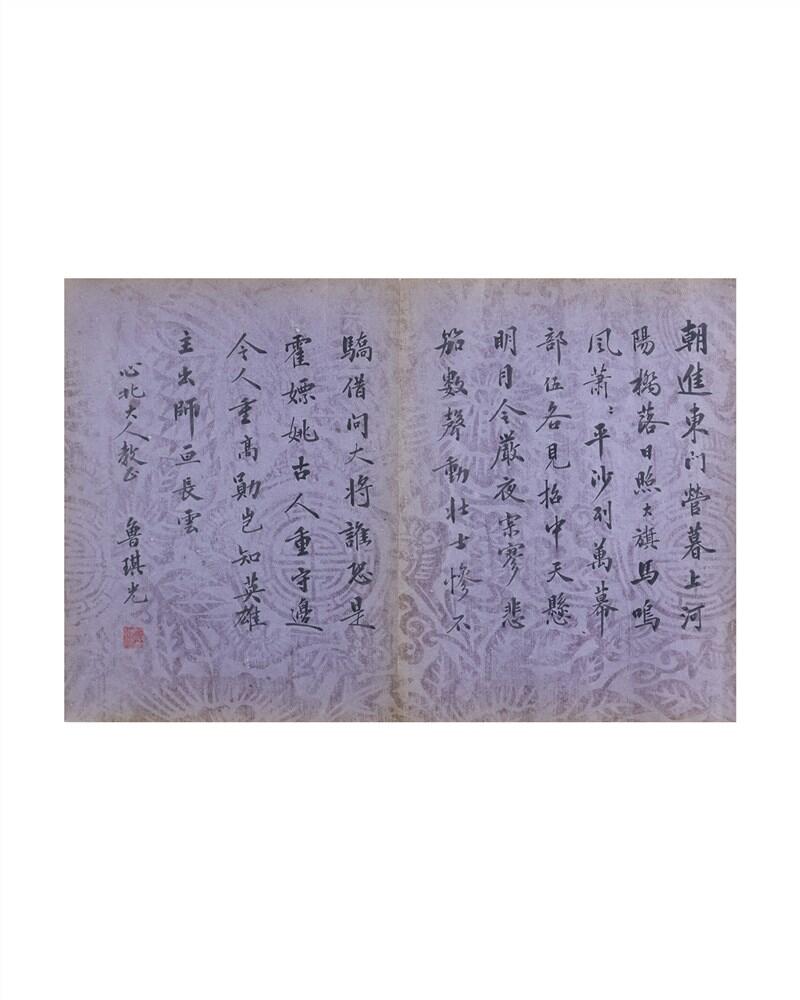 朝進東門營暮上河
陽橋落日照大旗馬鳴
風蕭〻平沙列萬幕
部伍各見招中天懸
明月令嚴夜寂寥悲
笳數聲動壯士慘不
驕借问大将誰恐是
霍嫖姚古人重守邊
今人重高勛岂知英雄
主出師亘長雲
心北大人教正
魯琪光